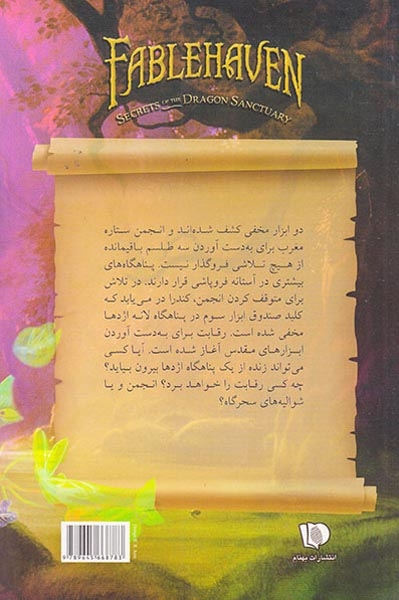 FABLEHAVEN
SECRETS OF THE DRAGON SANCTUARY
دو ابزار مخفی کشف شده‌اند و انجمن ستاره
مغرب برای به‌دست آوردن سه طلسم باقیمانده
از هیچ تلاشی فروگذار نیست. پناهگاه‌های
بیشتری در آستانه فروپاشی قرار دارند. در تلاش
برای متوقف کردن انجمن، کندرا در می‌یابد که
کلید صندوق ابزار سوم در پناهگاه لانه اژدها
مخفی شده است. رقابت برای به‌دست آوردن
ابزارهای مقدس آغاز شده است. آیا کسی
می‌تواند زنده از یک پناهگاه اژدها بیرون بیاید؟
چه کسی رقابت را خواهد برد؟ انجمن و یا
شوالیه‌های سحرگاه؟
9789645668783
انتشارات بهنام